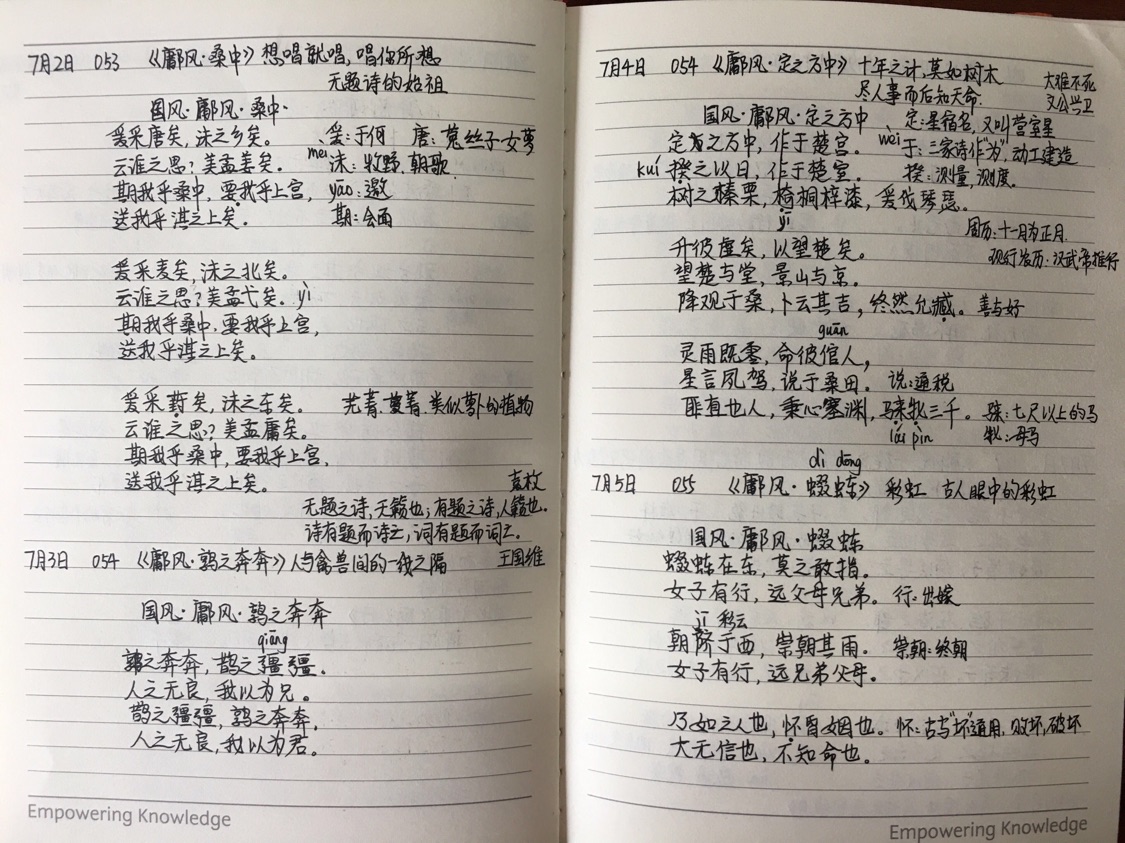 7月2日 053 《鄘风·桑中》想唱就唱,唱你所想
无题诗的始祖
国风·鄘风·桑中·
爰采唐矣,沬之乡矣。 爰:于何 唐:菟丝子·女萝
云谁之思?美孟姜矣。 mei 沬:牧野,朝歌.
期我乎桑中,要我乎上宫, yāo:邀
送我乎淇之上矣。 期:会面
爰采麦矣,沬之北矣。
云谁之思?美孟弋矣。 yì
期我乎桑中,要我乎上宫,
送我乎淇之上矣。
爰采葑矣,沬之东矣。 芜菁,蔓菁,类似萝卜的植物
云谁之思?美孟庸矣。
期我乎桑中,要我乎上宫,
送我乎淇之上矣。
袁枚
无题之诗,天籁也;有题之诗,人籁也.
诗有题而诗亡,词有题而词亡.
7月3日 054 《鄘风·鹑之奔奔》人与禽兽间的一线之隔 王国维
国风·鄘风·鹑之奔奔
qiāng
鹑之奔奔,鹊之彊彊.
人之无良,我以为兄。
鹊之彊彊,鹑之奔奔,
人之无良,我以为君。
Empowering Knowledge
7月4日 054 《鄘风·定之方中》十年之计,莫如树木
尽人事而后知天命.
大难不死
又公兴卫
国风·鄘风·定之方中 定:星宿名,又叫营室星
定之方中,作于楚宫。 wèi于:三家诗作"为",动工建造
kuí 揆之以日,作于楚室。 揆:测量,测度。
树之榛栗,椅桐梓漆,爰伐琴瑟。
yī
周历:十一月为正月.
升彼虚矣,以望楚矣。
现行农历:汉武帝推行
望楚与堂,景山与京。
降观于桑,卜云其吉,终然允臧。 善与好
guān
灵雨既零,命彼倌人,
星言夙驾,说于桑田。 说:通税
匪直也人,秉心塞渊,騋牝三千。 騋:七尺以上的马
lái pìn 牝:母马
dì dōng
7月5日 055 《鄘风·蝃蝀》 彩虹 古人眼中的彩虹
国风·鄘风·蝃蝀
蝃蝀在东,莫之敢指。
女子有行,远父母兄弟。 行:出嫁
jī 彩云
朝隮于西,崇朝其雨。 崇朝:终朝
女子有行,远兄弟父母。
乃如之人也,怀昏姻也。 怀:古与"坏"通用,败坏,破坏
大无信也,不知命也。
Empowering Knowledge